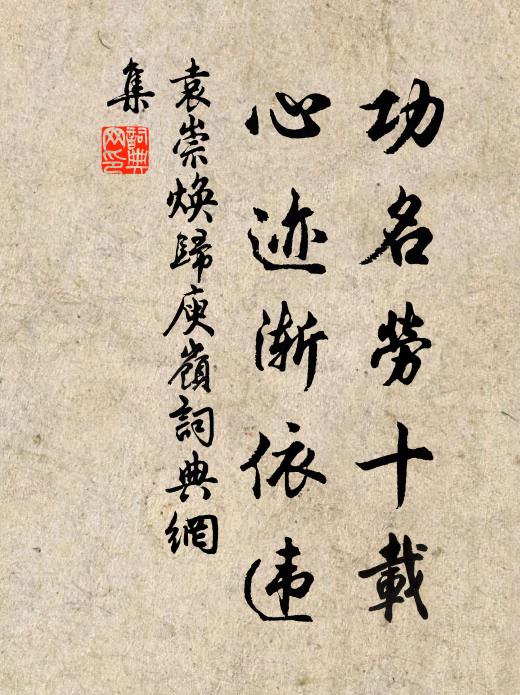 功名勞十載
心迹漸依违
袁崇煥歸庾嶺詞典網
集
詞典網印